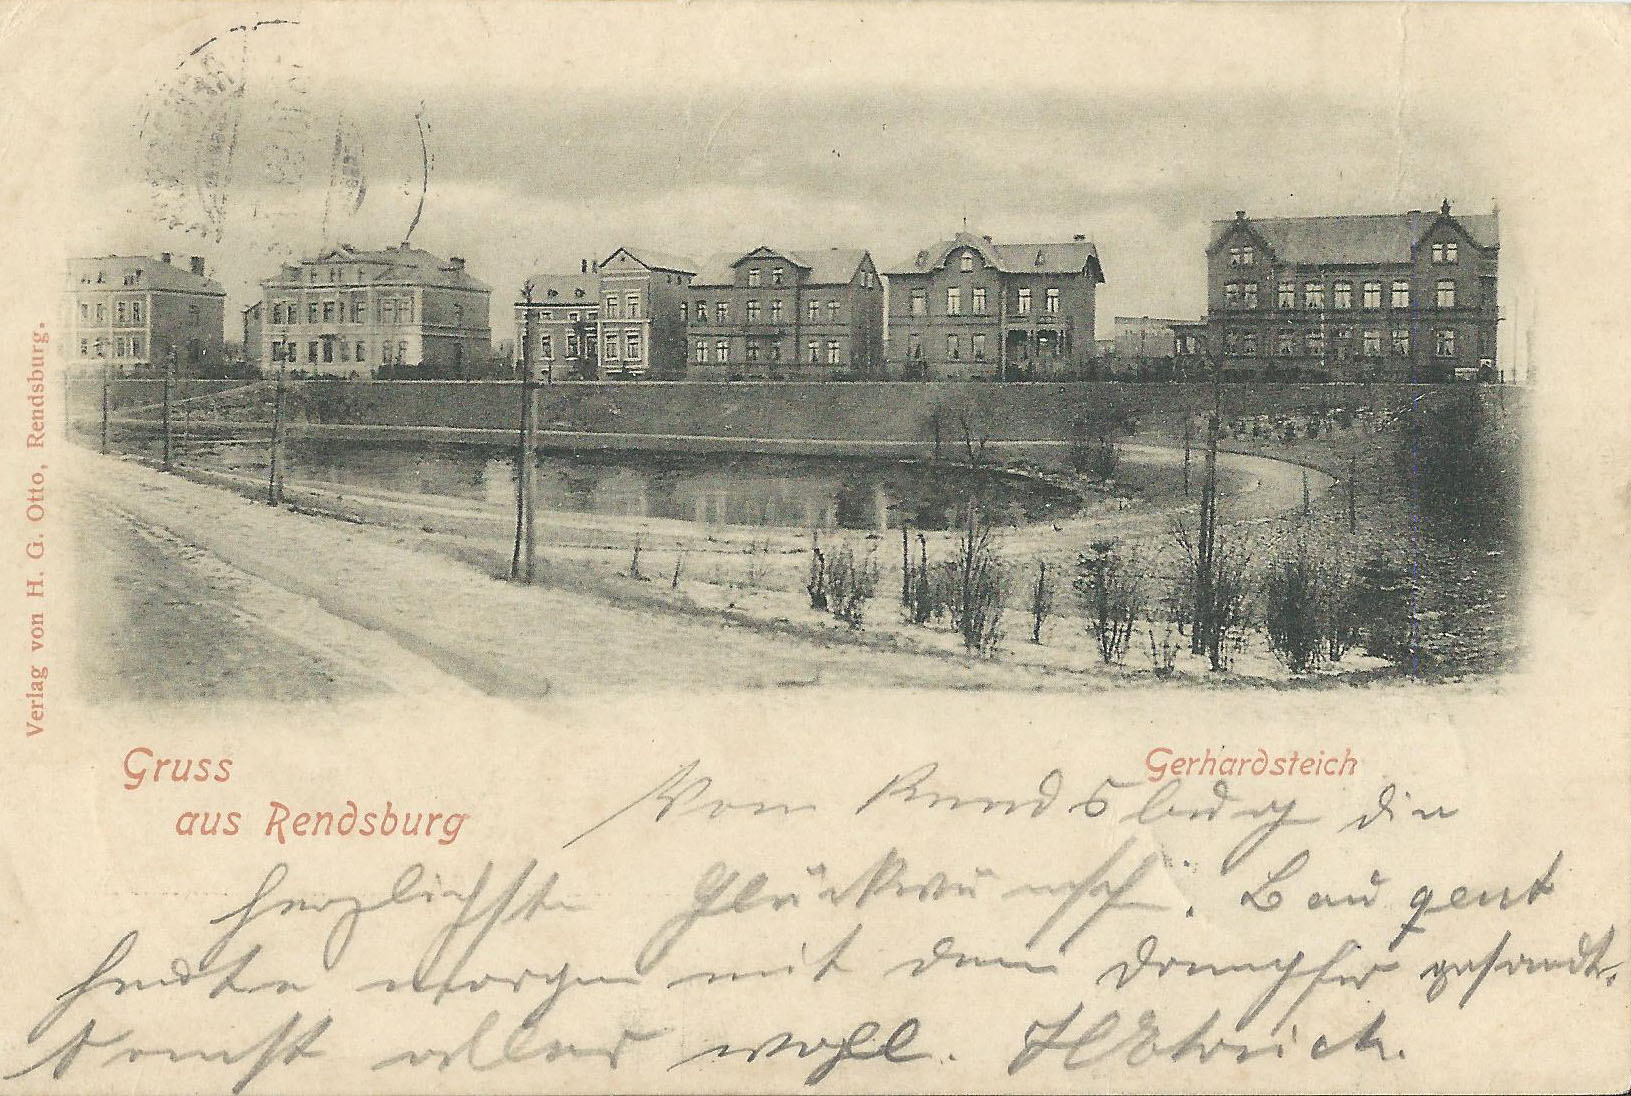 Verlag von H. G. Otto, Rendsburg.
Gruss
aus Rendsburg
Gerhardsteich
Von Rendsburg die
herzlichste Glückwünsche.
heute morgen mit dem Dampfer gesandt.
Sonst alles wohl.